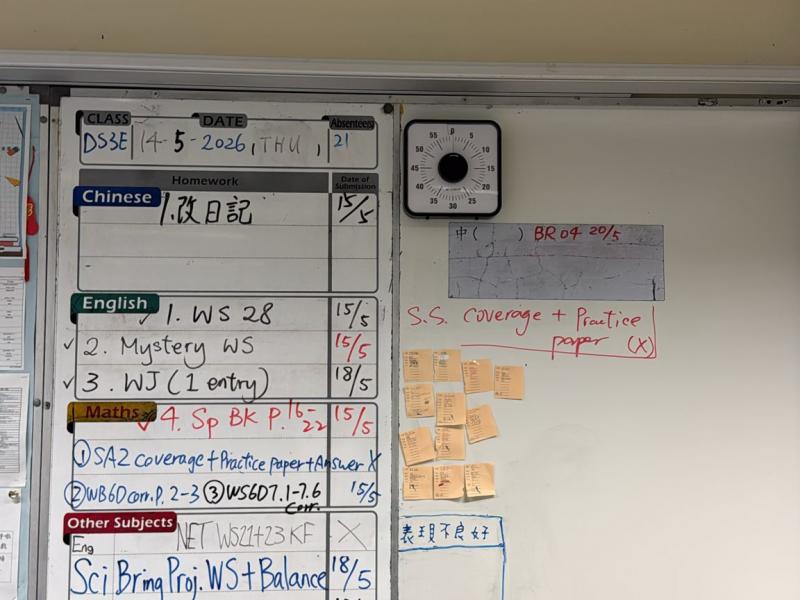 CLASS DATE Absentees
DS3E 14-5-2026, THU, 21
Homework Date of Submission
Chinese
1.改日記 15/5
English
✓ 1. WS 28 15/5
✓ 2. Mystery WS 15/5
✓ 3. WJ (1 entry) 18/5
Maths
✓ 4. Sp BK P. 16-22 15/5
① SA2 coverage + Practice paper + Answer X
② WB6D corr. P. 2-3 ③ WS6D7.1-7.6 corr. 15/5
Other Subjects
Eng NET WS21+23 KF X
Sci Bring Proj. WS + Balance 18/5
0 5 10 15 20 25 30 35 40 45 50 55
中( ) BR 04 20/5
S.S. coverage + Practice
paper (X)
表現不良好